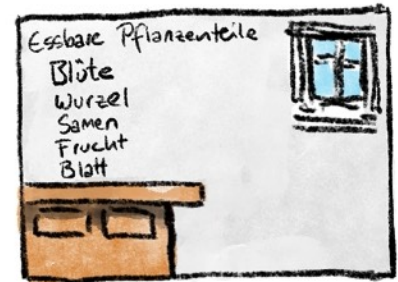 Essbare Pflanzenteile
Blüte
Wurzel
Samen
Frucht
Blatt